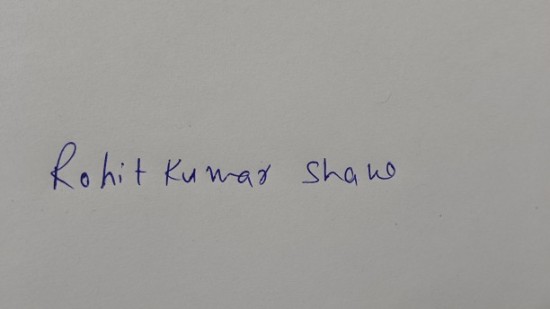 Rohit Kumar Shaw